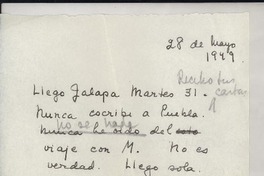 28 de Mayo
1949
Recibo tus
cartas
Llego Jalapa Martes 31.
Nunca escribí a Puebla.
no se nada
Nunca he oido del esto
viaje con M. No es
verdad. Llego sola.